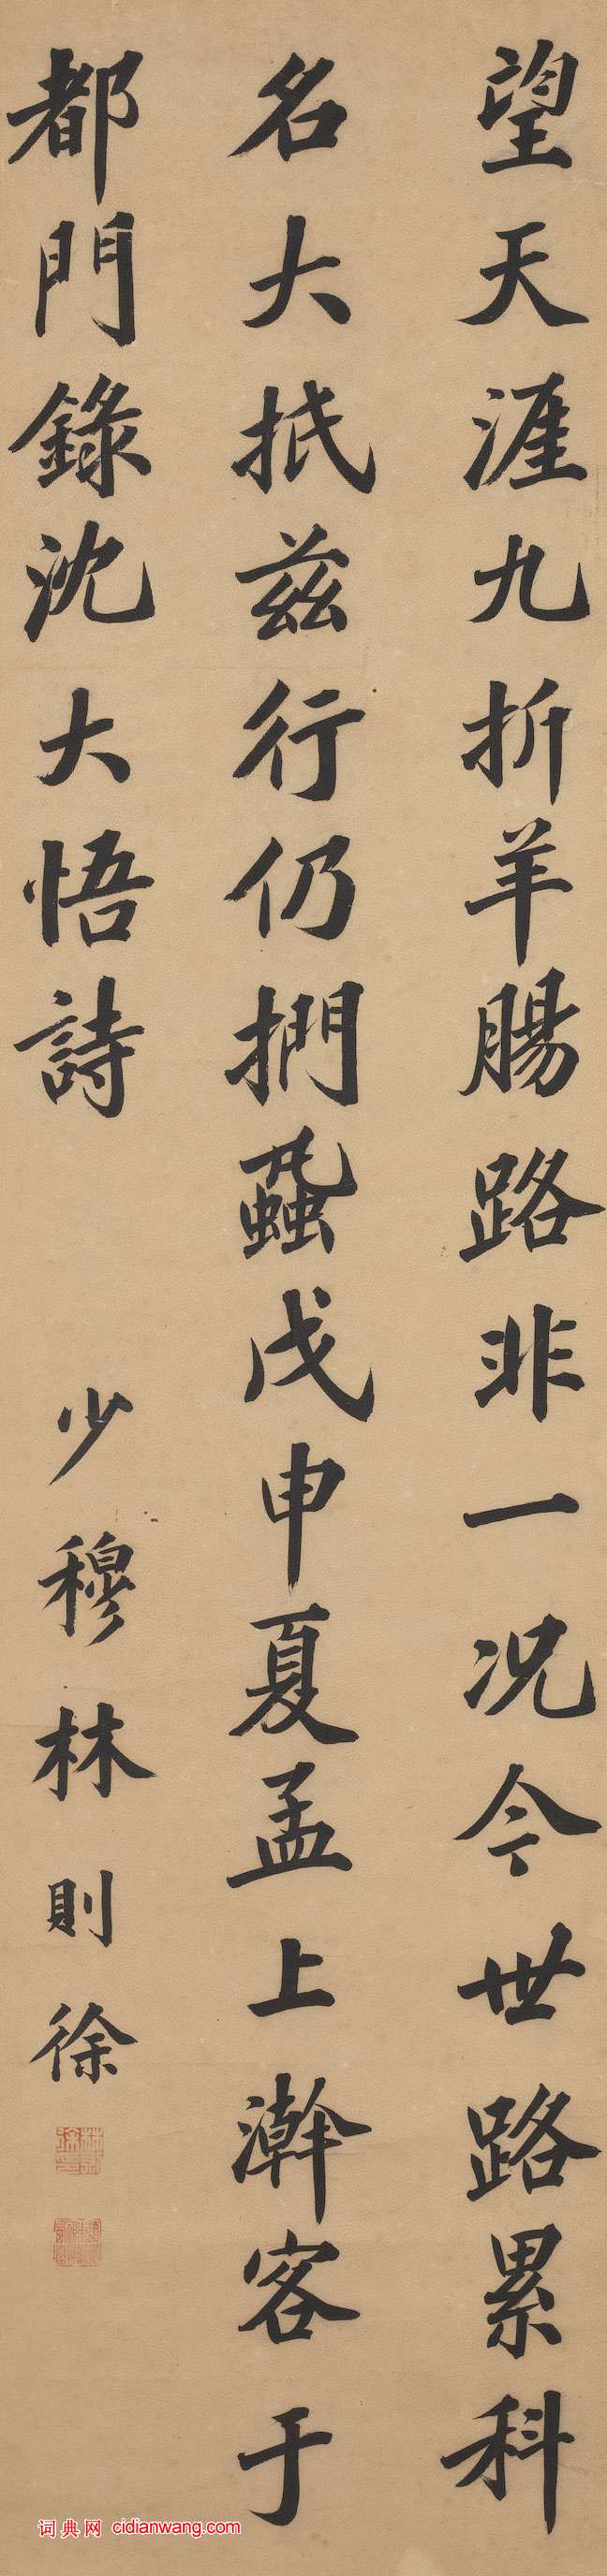 望天涯九折羊腸路非一况今世路累科
名大抵兹行仍捫蝨戊申夏孟上澣客于
都門錄沈大悟詩 少穆林則徐
词典网 cidianwang.com